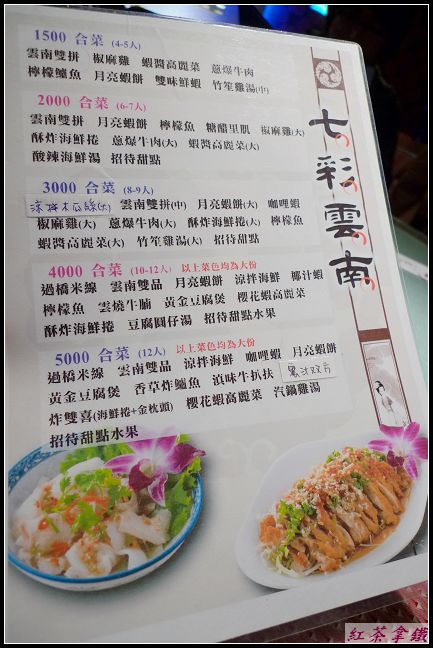 七彩雲南
1500 合菜 (4-5人)
雲南雙拼 椒麻雞 蝦醬高麗菜 蔥爆牛肉
檸檬鱸魚 月亮蝦餅 雙味鮮蝦 竹笙雞湯(中)
2000 合菜 (6-7人)
雲南雙拼 月亮蝦餅 檸檬魚 糖醋里肌 椒麻雞(大)
酥炸海鮮捲 蔥爆牛肉(大) 蝦醬高麗菜(大)
酸辣海鮮湯 招待甜點
3000 合菜 (8-9人)
涼拌木瓜絲(大) 雲南雙拼(中) 月亮蝦餅(大) 咖哩蝦
椒麻雞(大) 蔥爆牛肉(大) 酥炸海鮮捲(大) 檸檬魚
蝦醬高麗菜(大) 竹笙雞湯(大) 招待甜點
4000 合菜 (10-12人) 以上菜色均為大份
過橋米線 雲南雙品 月亮蝦餅 涼拌海鮮 椰汁蝦
檸檬魚 雲燒牛腩 黃金豆腐煲 櫻花蝦高麗菜
酥炸海鮮捲 豆腐圓仔湯 招待甜點水果
5000 合菜 (12人) 以上菜色均為大份
過橋米線 雲南雙品 涼拌海鮮 咖哩蝦 月亮蝦餅
黃金豆腐煲 香草炸鱸魚 滇味牛扒扶
炸雙喜(海鮮捲+金枕頭) 櫻花蝦高麗菜 汽鍋雞湯
招待甜點水果
紅茶拿鐵